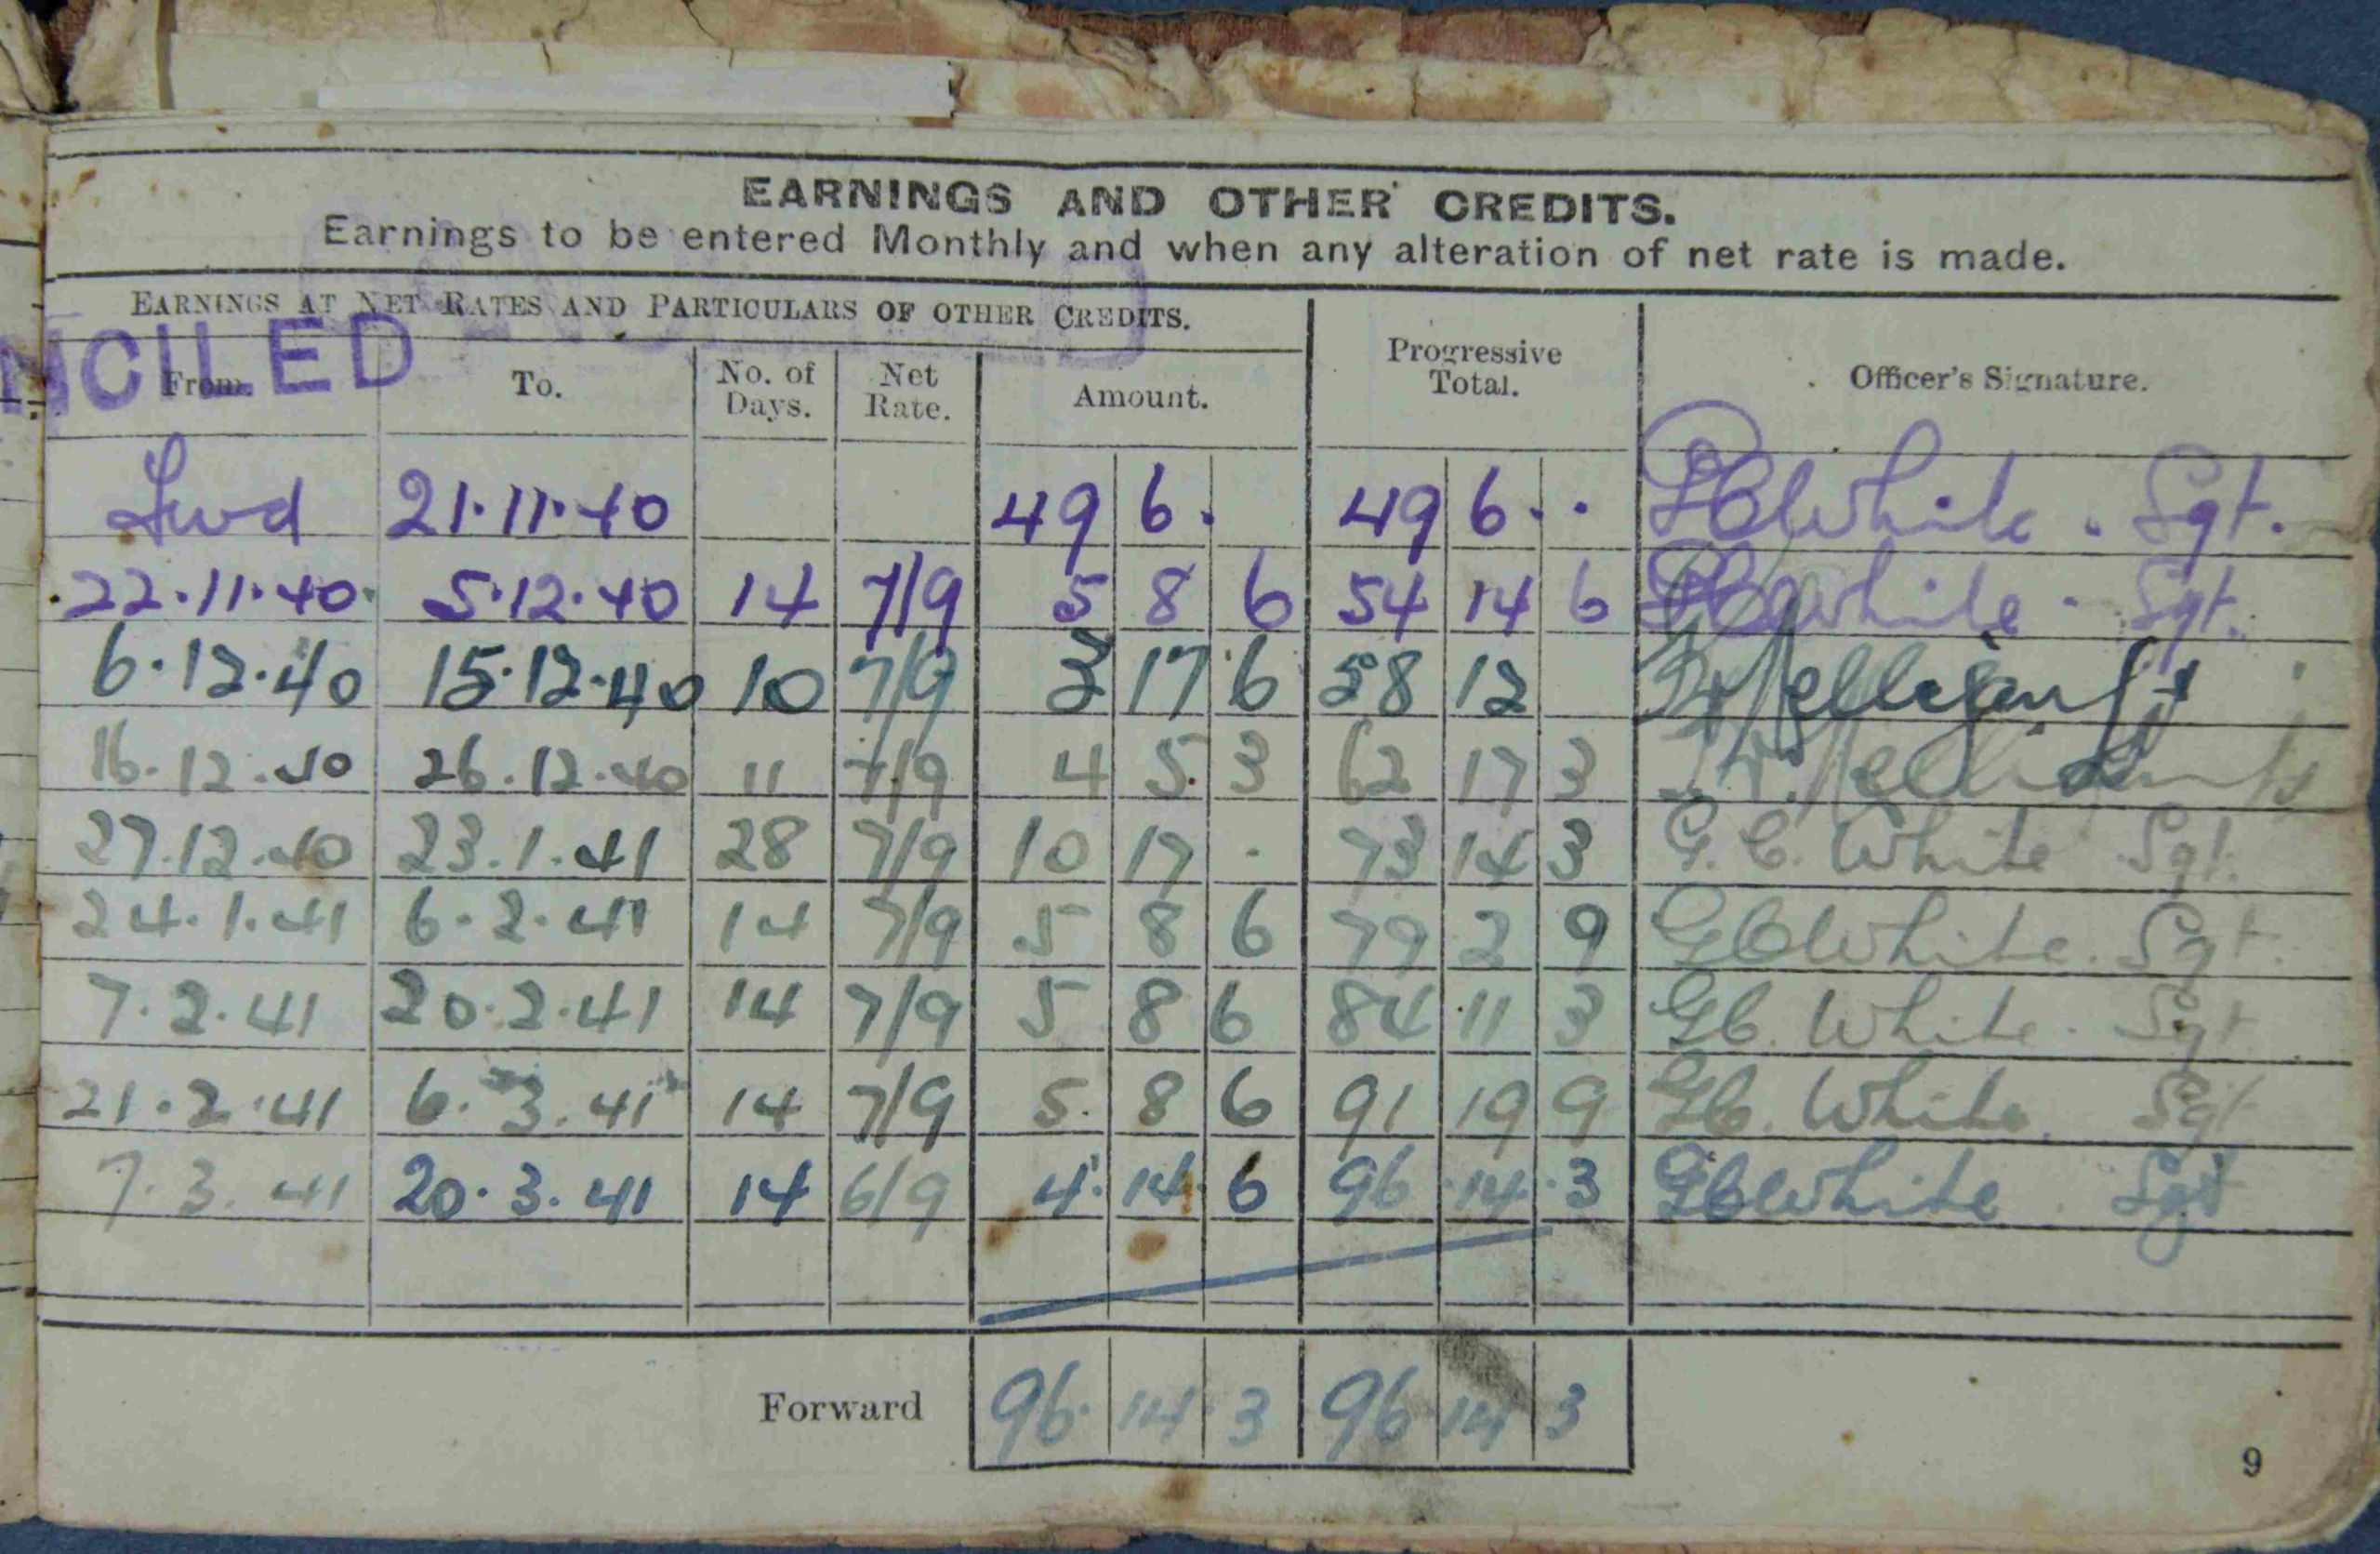 EARNINGS AND OTHER CREDITS.
Earnings to be entered Monthly and when any alteration of net rate is made.
EARNINGS AT NET RATES AND PARTICULARS OF OTHER CREDITS.
NCILED
From. To. No. of Days. Net Rate. Amount. Progressive Total. Officer's Signature.
Fwd 21.11.40 49 6 . 49 6 . . White . Sgt.
22.11.40 5.12.40 14 7/9 5 8 6 54 14 6 White . Sgt.
6.12.40 15.12.40 10 7/9 3 17 6 58 12
16.12.40 26.12.40 11 7/9 4 5 3 62 17 3
27.12.40 23.1.41 28 7/9 10 17 - 73 14 3 G. C. White Sgt.
24.1.41 6.2.41 14 7/9 5 8 6 79 2 9 GC White. Sgt.
7.2.41 20.2.41 14 7/9 5 8 6 84 11 3 GC. White. Sgt
21.2.41 6.3.41 14 7/9 5. 8 6 91 19 9 GC. White. Sgt
7.3.41 20.3.41 14 6/9 4. 14. 6 96 .14. .3 GC White Sgt
Forward 96. 14 . 3 96 14 3
9